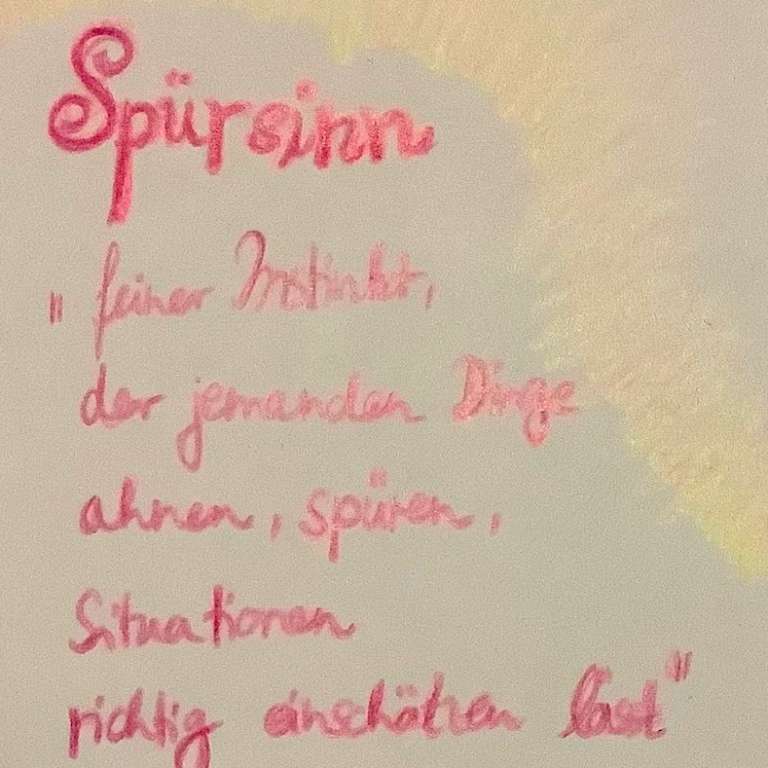 Spürsinn
"feiner Instinkt,
der jemanden Dinge
ahnen, spüren,
Situationen
richtig einschätzen lässt"